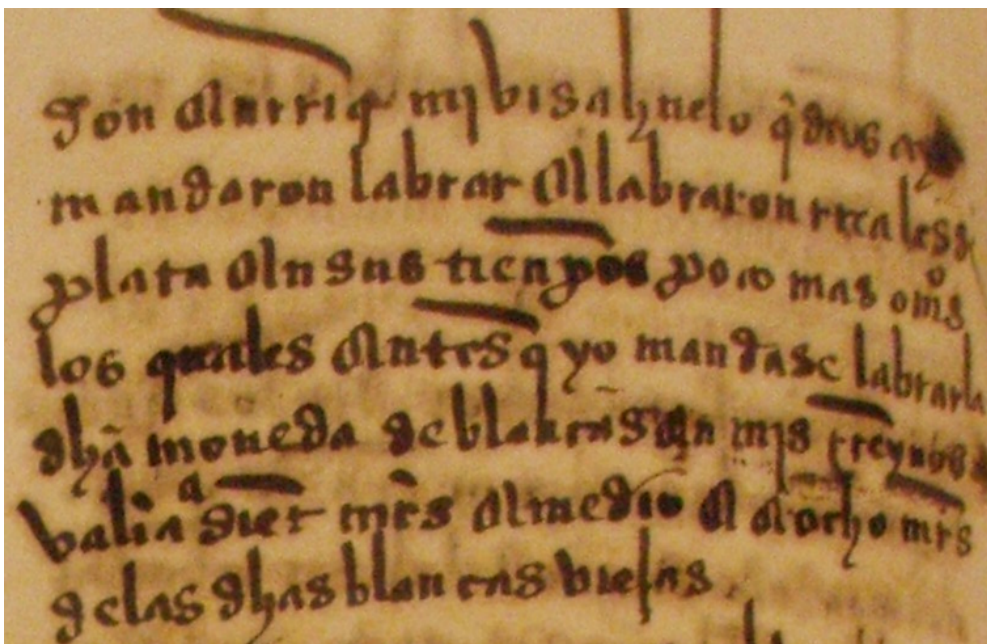 don enrriq mi bisahuelo q dios aya
mandaron labrar e labraron rreales de
plata en sus tienpos poco mas o mēs
los quales antes q yo mandase labrar la
dhā moneda de blancas en mis rreynos
valia a diez mrs e medio e a ocho mrs
de las dhas blancas viejas